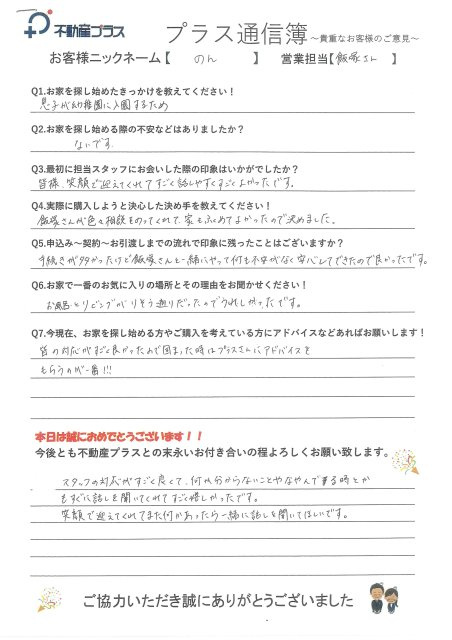 不動産プラス プラス通信簿 ～貴重なお客様のご意見～
お客様ニックネーム【 のん 】 営業担当【飯塚さん 】
Q1.お家を探し始めたきっかけを教えてください！
息子が幼稚園に入園するため
Q2.お家を探し始める際の不安などはありましたか？
ないです。
Q3.最初に担当スタッフにお会いした際の印象はいかがでしたか？
皆様、笑顔で迎えてくれてすごく話しやすくすごくよかったです。
Q4.実際に購入しようと決心した決め手を教えてください！
飯塚さんが色々相談をのってくれて、家もふくめてよかったので決めました。
Q5.申込み～契約～お引渡しまでの流れで印象に残ったことはございますか？
手続きが多かったけど飯塚さんと一緒にやって何も不安がなく安心してできたので良かったです。
Q6.お家で一番のお気に入りの場所とその理由をお聞かせください！
お風呂とリビングがりそう通りだったのでうれしかったです。
Q7.今現在、お家を探し始める方やご購入を考えている方にアドバイスなどあればお願いします！
皆の対応がすごく良かったので困まった時はプラスさんにアドバイスを
もらうのが一番!!!
本日は誠におめでとうございます！！
今後とも不動産プラスとの末永いお付き合いの程よろしくお願い致します。
スタッフの対応がすごく良くて、何か分からないことやなやんでる時とか
もすぐに話しを聞いてくれてすごく嬉しかったです。
笑顔で迎えてくれてまた何かあったら一緒に話しを聞いてほしいです。
ご協力いただき誠にありがとうございました